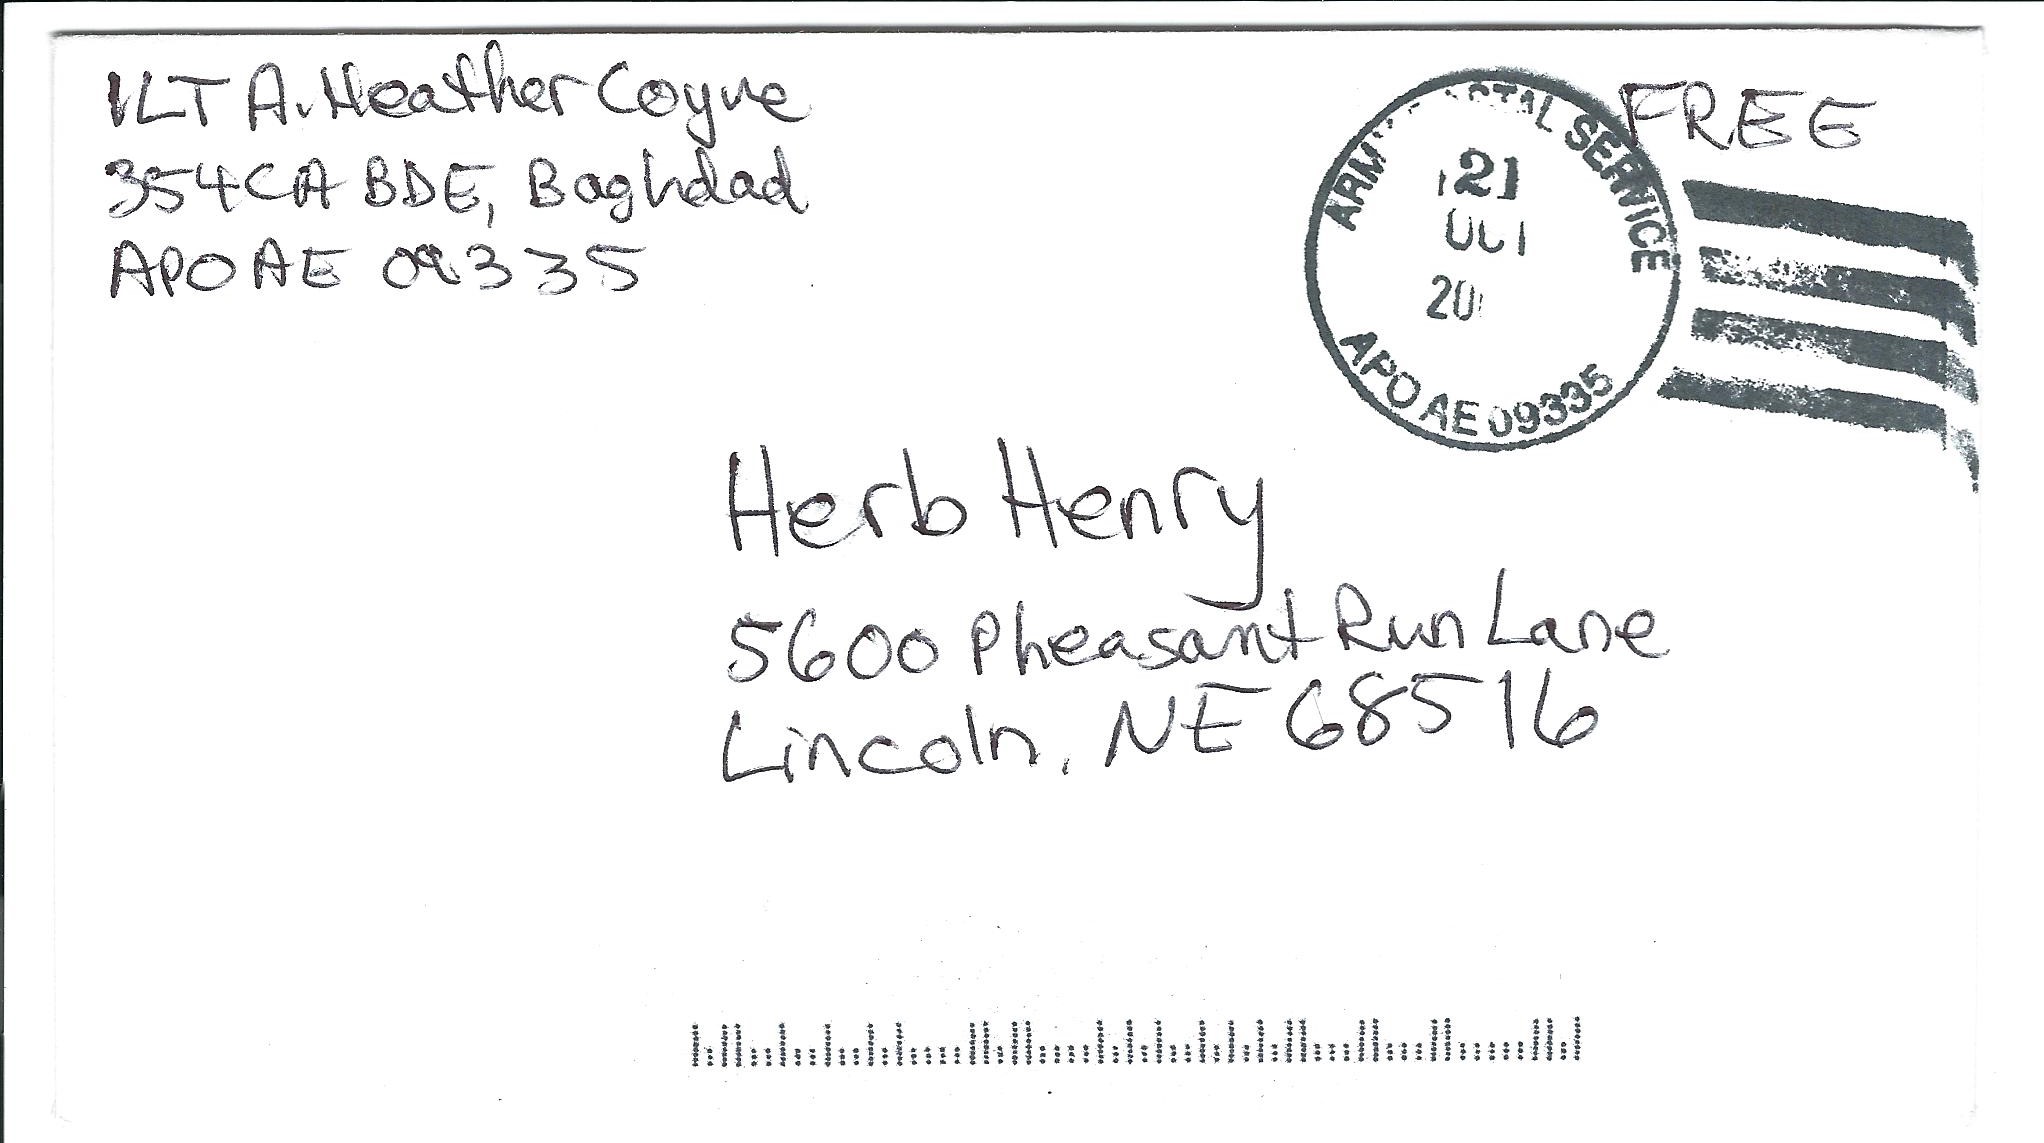 1LT A. Heather Coyne
354 CA BDE, Baghdad
APO AE 09335
FREE
SERVICE
21
20
APO AE 09335
Herb Henry
5600 Pheasant Run Lane
Lincoln, NE 68516